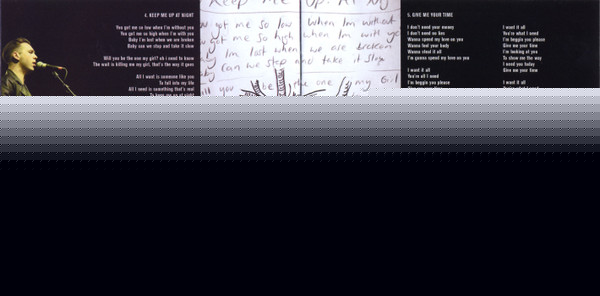 4. KEEP ME UP AT NIGHT
You got me so low when I'm without you
You got me so high when I'm with you
Baby I'm lost when we are broken
Baby can we stop and take it slow
Will you be the one my girl? oh I need to know
The wait is killing me my girl, that's the way it goes
All I want is someone like you
To fall into my life
All I need is something that's real
To keep me up at night
Keep Me Up At Ni
got me so low when I'm without
got me so high when I'm with yo
I'm lost when we are broken
can we stop and take it slow
you be the one my Girl
5. GIVE ME YOUR TIME
I don't need your money
I don't need no lies
Wanna spend my love on you
Wanna feel your body
Wanna steal it all
I'm gonna spend my love on you
I want it all
You're all I need
I'm beggin you please
Give me your time
I want it all
You're what I need
I'm beggin you please
Give me your time
I'm looking at you
To show me the way
I need you today
Give me your time
I want it all